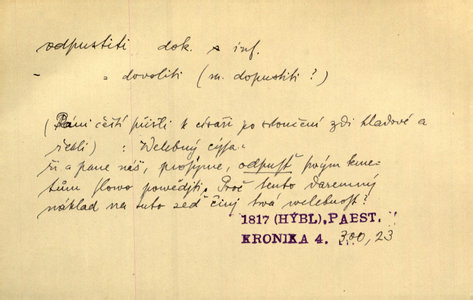 odpustiti dok. s inf.
- „ dovoliti (m. dopustiti?)
(Páni čeští přišli k císaři po skončení zdi hladové a
řekli) : Welebný cýsa-
ři a pane náš, prosýme, odpusť swým kme-
tům slowo powěděti. Proč tento daremný
náklad na tuto zeď činj twá welebnost?
1817 (HÝBL), PAEST.
KRONIKA 4. 300, 23